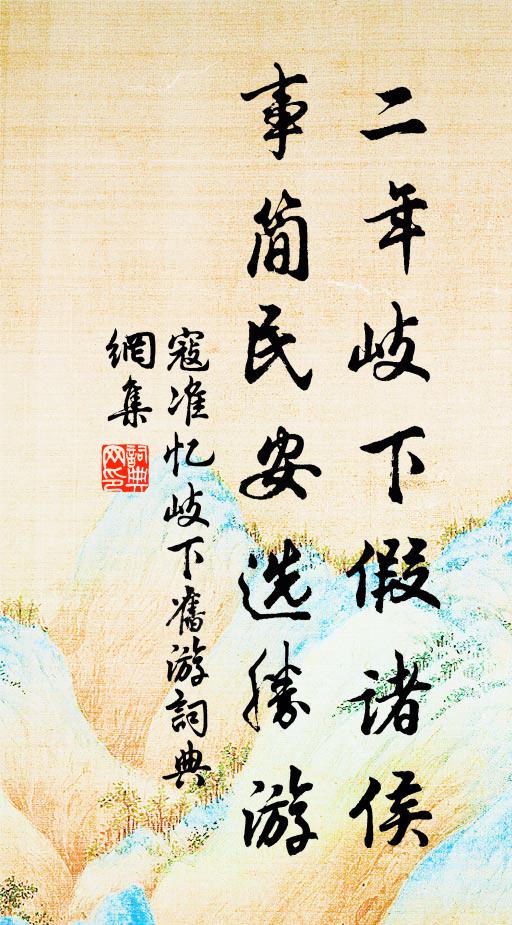 二年岐下假诸侯
事简民安选胜游
寇准忆岐下旧游詞典
網集
詞典网印